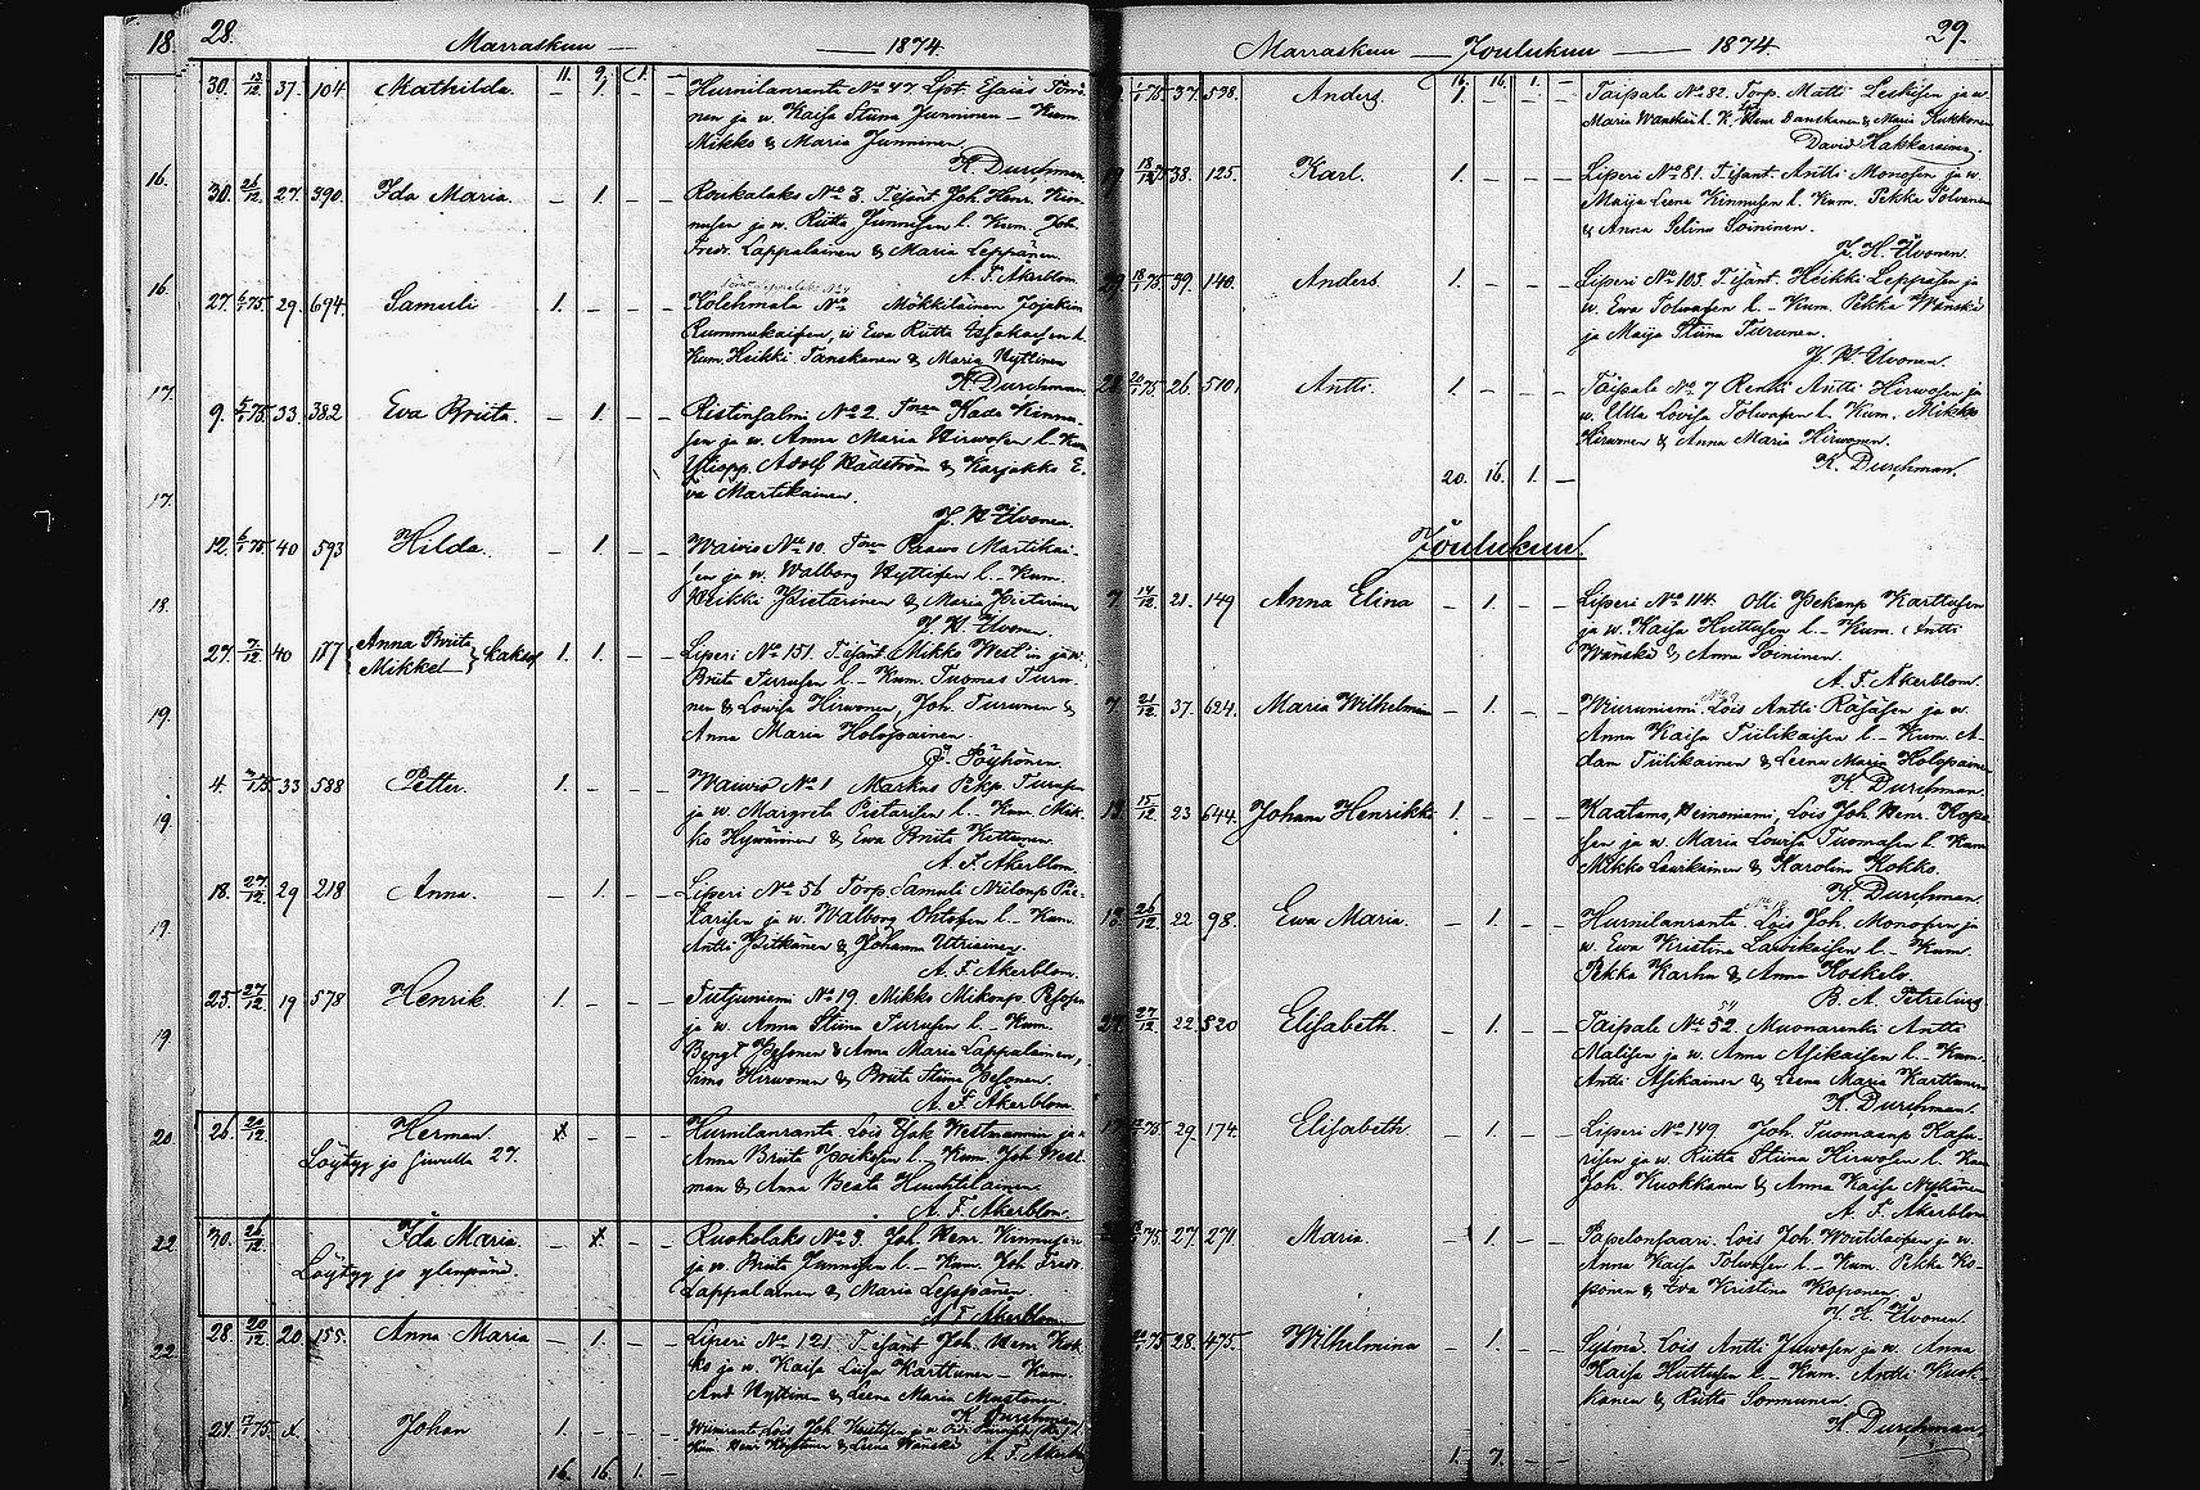 28.
Marraskuu — — 1874.
11. 9. 1. —
30. 13/12. 37. 104 Mathilda. — 1. — — Hurnilanranta No 47 Lpt. Esaias
nen ja w. Kaisa Stiina Junninen — Kum.
Mikko & Maria Junninen.
K. Durchman.
30. 26/12. 27. 390. Ida Maria. — 1. — — Roukalaks No 3. T-isänt. Joh. Henr. Kin-
nusen ja w. Riitta Junnisen l. Kum. Joh.
Fredr. Lappalainen & Maria Leppänen.
A. F. Akerblom.
27. 6/1 75. 29. 694. Samuli 1. — — — Kolehmala No Mökkiläinen Jojakim
Rummukaisen, w Ewa Riitta Issakaisen l.
Kum. Heikki Tanskanen & Maria Hyttinen
K. Durchman.
9. 5/1 75. 33. 382 Eva Briita. — 1. — — Ristinsalmi No 2. Kinnu-
sen ja w. Anna Maria Hirwosen l. Kum
Yliopp. Adolf Rädström & Karjakko E-
va Martikainen.
J. H. Uvonen.
12. 6/1 75. 40 593 Hilda. — 1. — — Waivio No 10. Paawo Martikai-
sen ja w. Walborg Hyttisen l. — Kum.
Heikki Pietarinen & Maria Pietarinen
J. H. Uvonen.
27. 7/12. 40 177 Anna Briita Mikkel kaksos 1. 1. — — Liperi No 151. T-isänt. Mikko West'in ja w.
Briita Turusen l. — Kum. Tuomas Turu-
nen & Lowisa Hirwonen, Joh. Turunen &
Anna Maria Holopainen.
J. Pöyhönen.
4. 33 588 Petter. 1. — — — Waiwio No 1 Markus Pekp. Turusen
ja w. Margreta Pietarisen l. — Kum. Mik-
ko Hywärinen & Ewa Briita Kettunen.
A. F. Akerblom.
18. 27/12. 29 218 Anna. — 1. — — Liperi No 56 Torp. Samuli Niilonp Pie-
tarisen ja w. Walborg Ohtosen l. — Kum.
Antti Pitkänen & Johanna Utriainen.
A. F. Akerblom.
25. 27/12. 19 578 Henrik. 1. — — — Tutjuniemi No 19. Mikko Mikonp. Pesosen
ja w. Anna Stiina Turusen l. — Kum.
Bengt Pesonen & Anna Maria Lappalainen,
Simo Hirwonen & Briita Stiina Pesonen.
A. F. Akerblom.
26. 20/12. Herman. x — — — Hurnilanranta Lois Isak Westmannin ja w
Löytyy jo siwulla 27. Anna Briita Poikosen l. — Kum. Joh West-
man & Anna Beata Huuhtilainen.
A. F. Akerblom.
30. 26/12. Ida Maria. — x — — Ruokolaks No 3. Joh. Henr. Kinnusen
Löytyy jo ylempänä. ja w. Briita Junnisen l. — Kum. Joh Fredr.
Lappalainen & Maria Leppänen.
A F Akerblom.
28. 20/12. 20. 155. Anna Maria — 1. — — Liperi No 121. T-isänt Joh. Henr Kok-
ko ja w. Kaisa Liisa Karttunen — Kum.
And Hyttinen & Leena Maria Mustonen.
K. Durchman
27. 17/1 75. x. Johan 1. — — —
Kum. Henr & Leena Wänskä A. F. Akerblom
16. 16. 1. —
29.
Marraskuu — Joulukuu — 1874.
16. 16. 1. —
1/1 75. 37. 538. Anders. 1. — — — Taipale No 82. Torp. Matti Leskisen ja w.
Maria Wänskän l. K. Henr Danskanen & Maria Kukkonen
David Hakkarainen.
38. 125. Karl. 1. — — — Liperi No 81. T-isänt. Antti Monosen ja w.
Maija Leena Kinnusen l. Kum. Pekka Tolvanen
& Anna Selina Soininen.
J. H. Uvonen.
18/1 75. 39. 140. Anders. 1. — — — Liperi No 103. T-isänt. Heikki Leppäsen ja
w. Ewa Tolwasen l. — Kum. Pekka Wänskä
ja Maija Stiina Turunen.
J. H. Uvonen.
26/1 75. 26 510. Antti. 1. — — — Taipale No 7 Renki Antti Hirwosen ja
w. Ulla Lovisa Tolwasen l. Kum. Mikko
Hirwonen & Anna Maria Hirwonen.
K. Durchman.
20. 16. 1. —
Joulukuu.
7. 14/12. 21. 149 Anna Elina — 1. — — Liperi No 114. Olli Pekanp Karttusen
ja w. Kaisa Huttusen l. — Kum. Antti
Wänskä & Anna Soininen.
A. F. Akerblom.
7 21/12. 37. 624. Maria Wilhelmina — 1. — — Wiuruniemi. Lois Antti Räsäsen ja w.
Anna Kaisa Tiilikaisen l. — Kum. A-
dam Tiilikainen & Leena Maria Holopainen
K. Durchman.
13. 15/12. 23 644. Johan Henrikki 1. — — — Kaatamo, Heinoniemi, Lois Joh. Henr. Kopo-
sen ja w. Maria Lowisa Tuomasen l. Kum
Mikko Laurkainen & Karolina Kokko.
K. Durchman.
13. 26/12 22 98. Ewa Maria. — 1. — — Hurnilanranta. Lois Joh. Monosen ja
w. Ewa Kristina Lawikaisen l. — Kum.
Pekka Karhu & Anna Koskelo.
B. A. Petrelius.
27. 27/12 22. 520 Elisabeth. — 1. — — Taipale No 52. Muonarenki Antti
Malisen ja w. Anna Asikaisen l. — Kum.
Antti Asikainen & Leena Maria Karttunen
K. Durchman.
29. 174. Elisabeth. — 1. — — Liperi No 149 Joh. Tuomaanp Kasu-
risen ja w. Riitta Stiina Hirwosen l. Kum
Joh. Kuokkanen & Anna Kaisa Nykänen
A. F. Akerblom
27. 271. Maria. — 1. — — Papelonsaari. Lois Joh. Woutilaisen ja w.
Anna Kaisa Tolwasen l. — Kum. Pekka Ko-
ponen & Eva Kristina Koponen.
J. H. Uvonen.
28. 475. Wilhelmina — 1. — — Sysmä. Lois Antti Juwosen ja w. Anna
Kaisa Huttusen l. — Kum. Antti Kuok-
kanen & Riitta Sormunen.
K. Durchman.
1. 7. — —